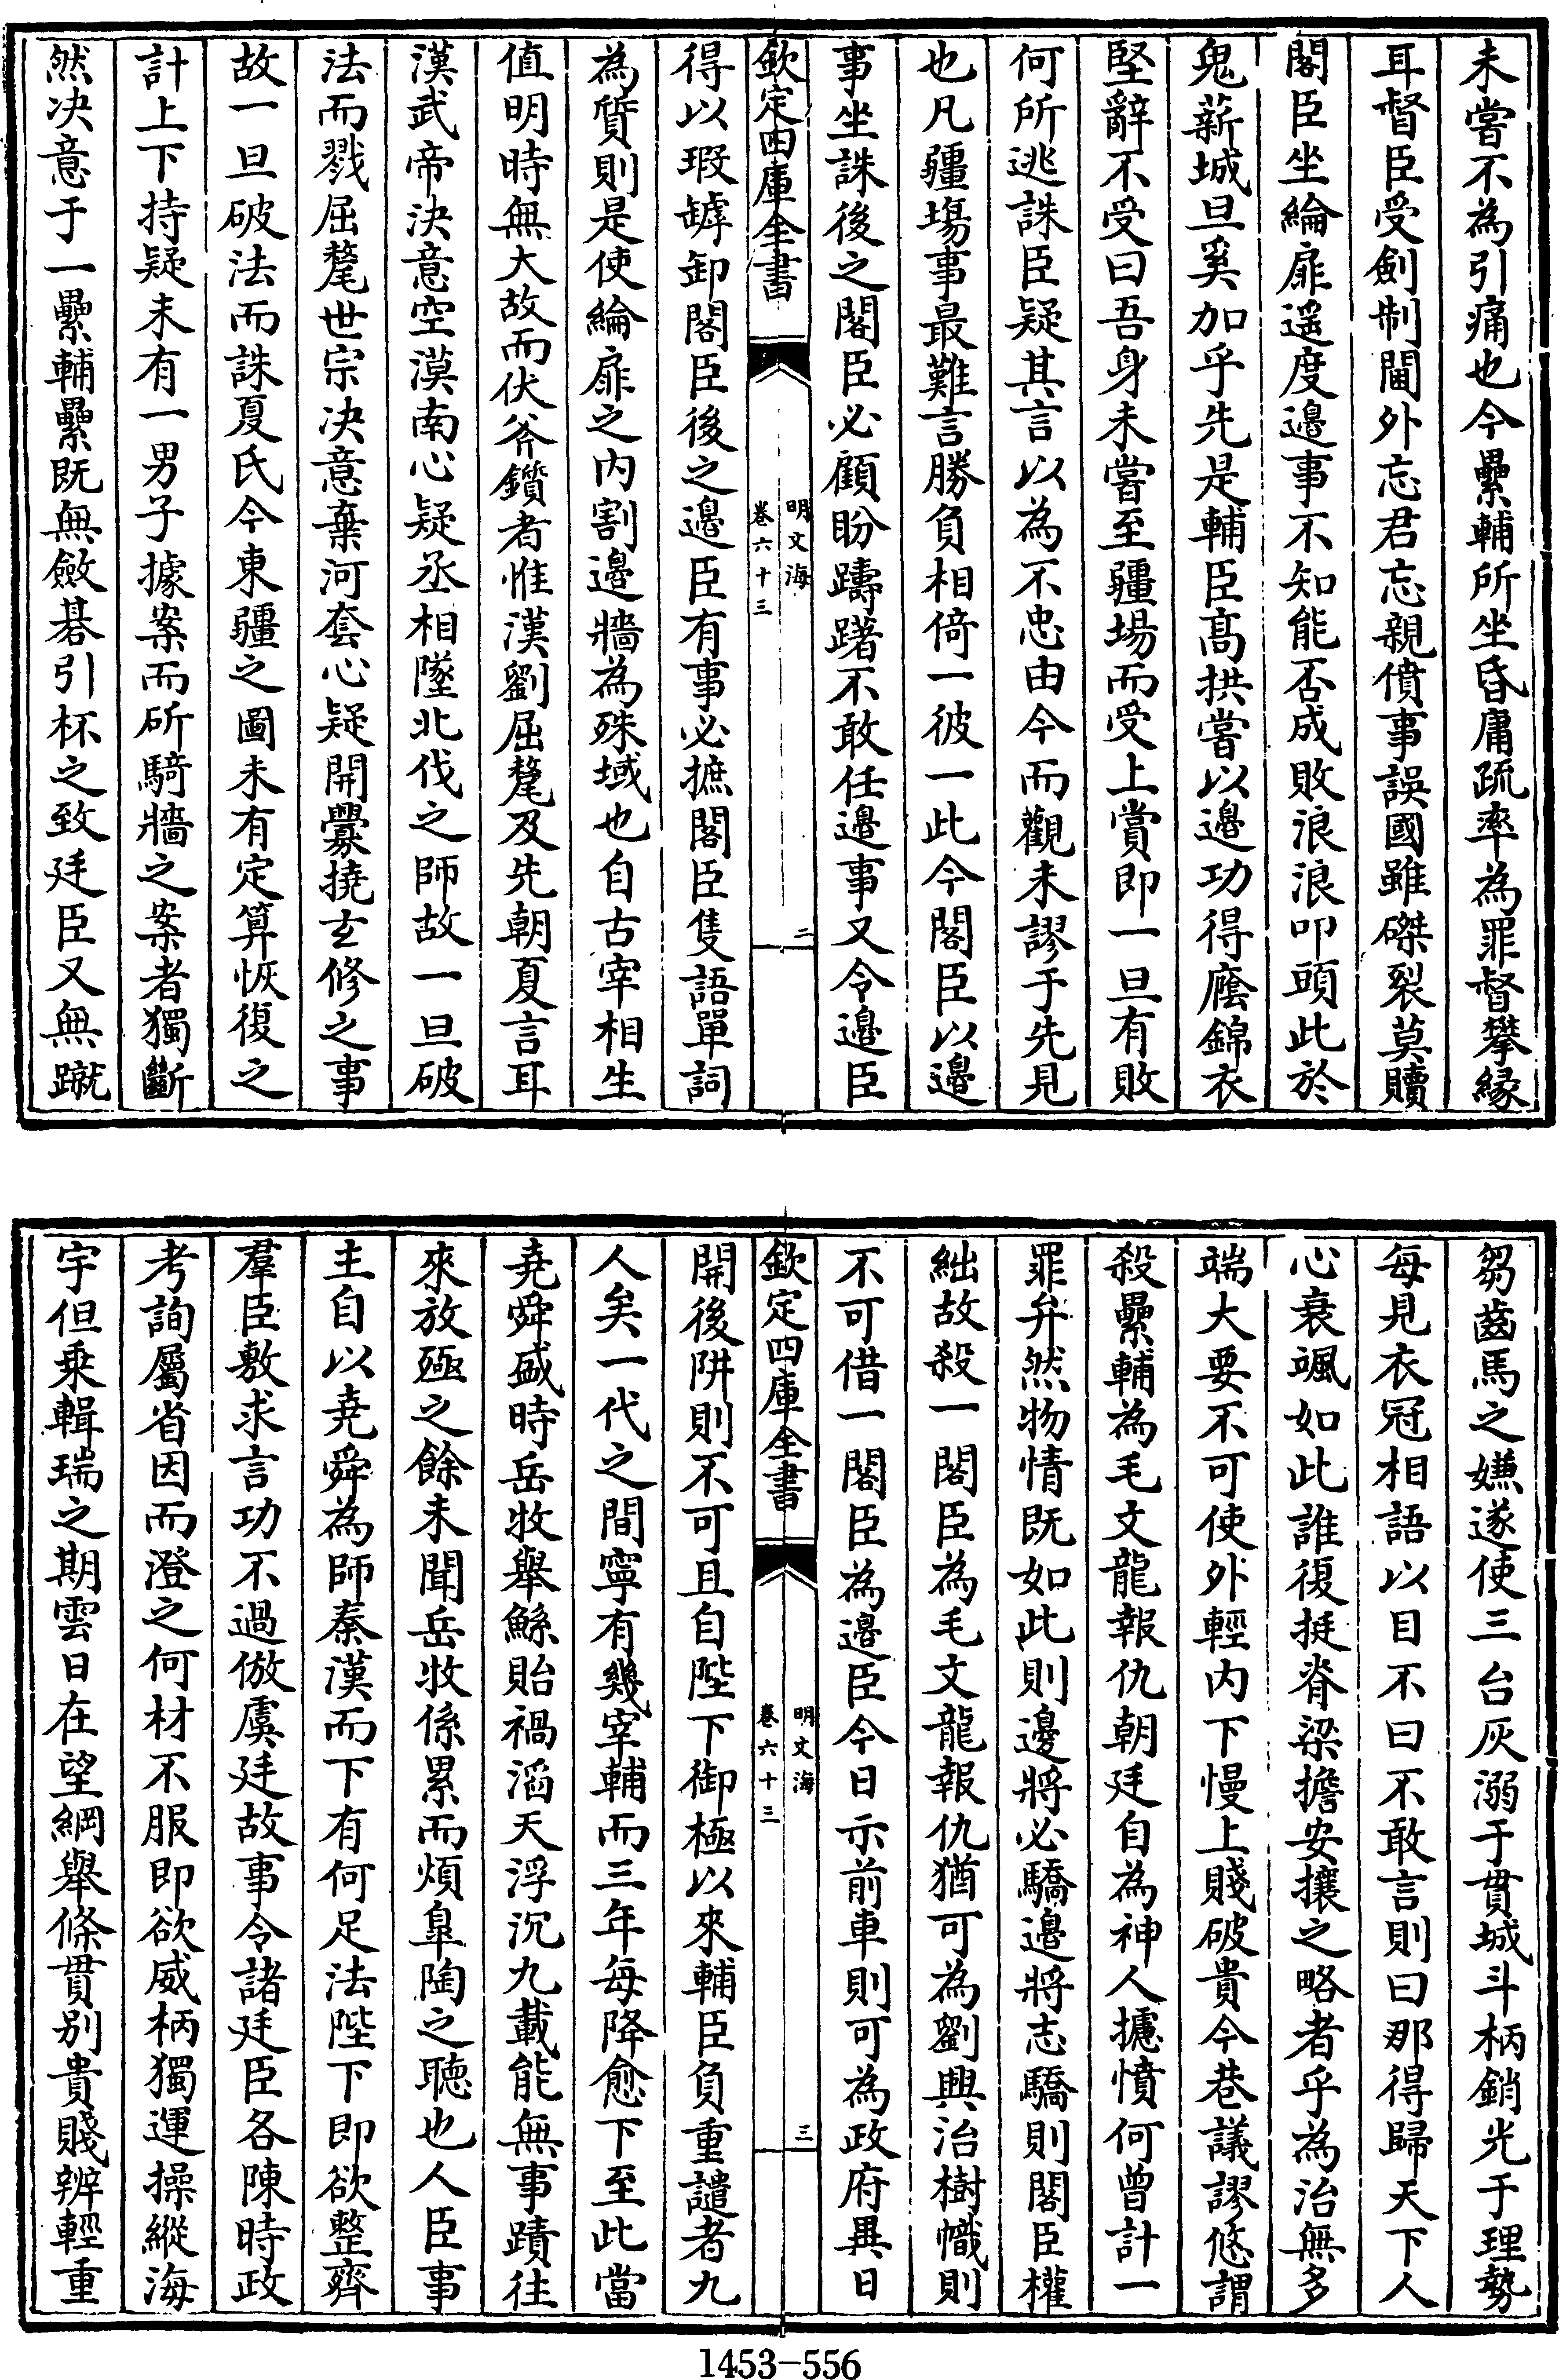 未嘗不為引痛也今纍輔所坐昏庸疏率為罪督攀縁
耳督臣受劍制閫外忘君忘親僨事誤國雖磔裂莫贖
閣臣坐綸扉遥度邊事不知能否成敗浪浪叩頭此於
鬼薪城旦奚加乎先是輔臣髙拱嘗以邊功得廕錦衣
堅辭不受曰吾身未嘗至疆場而受上賞即一旦有敗
何所逃誅臣疑其言以為不忠由今而觀未謬于先見
也凡疆塲事最難言勝負相倚一彼一此今閣臣以邊
事坐誅後之閣臣必顧盼躊躇不敢任邊事又令邊臣
欽定四庫全書
明文海
卷六十三
二
得以瑕罅卸閣臣後之邊臣有事必摭閣臣隻語單詞
為質則是使綸扉之内割邊牆為殊域也自古宰相生
值明時無大故而伏斧鑕者惟漢劉屈氂及先朝夏言耳
漢武帝決意空漠南心疑丞相墜北伐之師故一旦破
法而戮屈氂世宗决意棄河套心疑開釁撓玄修之事
故一旦破法而誅夏氏今東疆之圖未有定算恢復之
計上下持疑未有一男子據案而斫騎牆之案者獨斷
然决意于一纍輔纍既無斂碁引杯之致廷臣又無蹴
芻齒馬之嫌遂使三台灰溺于貫城斗柄銷光于理勢
每見衣冠相語以目不曰不敢言則曰那得歸天下人
心衰颯如此誰復挺脊梁擔安攘之略者乎為治無多
端大要不可使外輕内下慢上賤破貴今巷議謬悠謂
殺纍輔為毛文龍報仇朝廷自為神人攄憤何曾計一
罪弁然物情既如此則邊將必驕邊將志驕則閣臣權
絀故殺一閣臣為毛文龍報仇猶可為劉興治樹幟則
不可借一閣臣為邊臣今日示前車則可為政府異日
欽定四庫全書
明文海
卷六十三
三
開後阱則不可且自陛下御極以來輔臣負重譴者九
人矣一代之間寧有幾宰輔而三年每降愈下至此當
堯舜盛時岳牧舉鯀貽禍滔天浮沉九載能無事蹟往
來放殛之餘未聞岳牧係累而煩臯陶之聽也人臣事
主自以堯舜為師秦漢而下有何足法陛下即欲整齊
羣臣敷求言功不過倣虞廷故事令諸廷臣各陳時政
考詢屬省因而澄之何材不服即欲威柄獨運操縱海
宇但乗輯瑞之期雲日在望綱舉條貫别貴賤辨輕重
1453-556